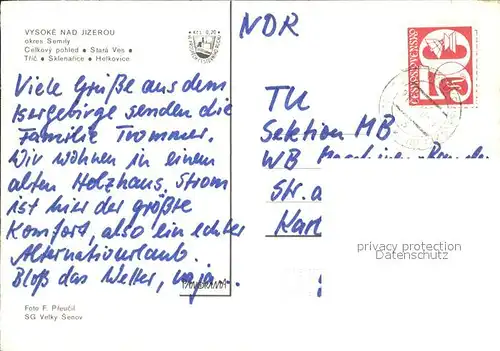 VYSOKÉ NAD JIZEROU
okres Semily
Celkový pohled • Stará Ves •
Tříč • Sklenařice • Helkovice
Kčs 0,20
NDR
ČESKOSLOVENSKO
50
Viele Grüße aus dem
Isergebirge senden die
Familie Trommer.
Wir wohnen in einem
alten Holzhaus. Strom
ist hier der größte
Komfort, also ein echter
Alternativurlaub.
Bloß das Wetter, naja.
TU
Sektion MB
WB
Str.
privacy protection
Datenschutz
Foto F. Přeučil
SG Velký Šenov